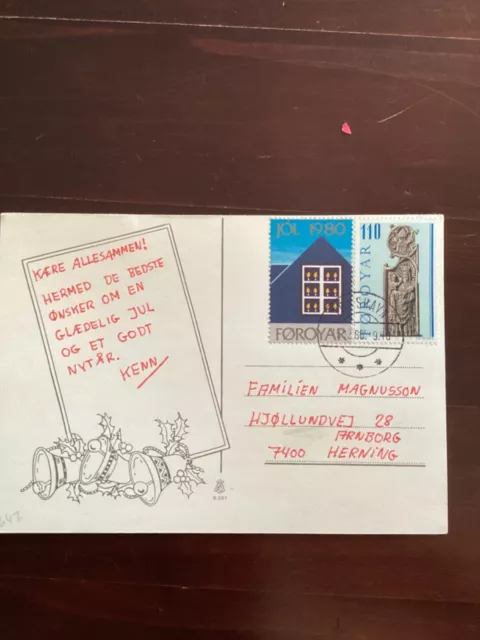 KÆRE ALLESAMMEN!
HERMED DE BEDSTE
ØNSKER OM EN
GLÆDELIG JUL
OG ET GODT
NYTÅR.
KENN
JÓL 1980
FØROYAR
110
FØROYAR
FAMILIEN MAGNUSSON
HJØLLUNDVEJ 28
ARNBORG
7400 HERNING